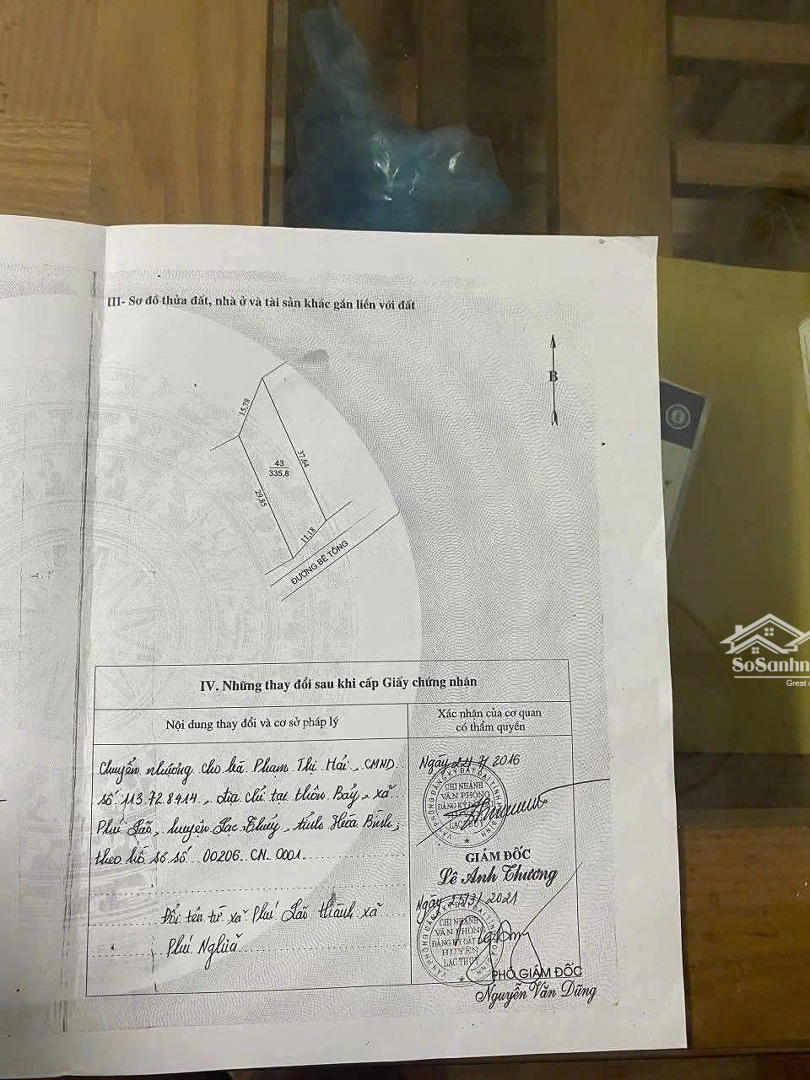 III- Sơ đồ thửa đất, nhà ở và tài sản khác gắn liền với đất
B
15,78
43
335,8
37,64
29,85
11,18
ĐƯỜNG BÊ TÔNG
IV. Những thay đổi sau khi cấp Giấy chứng nhận
Nội dung thay đổi và cơ sở pháp lý
Xác nhận của cơ quan
có thẩm quyền
Chuyển nhượng cho bà Phạm Thị Hải, CMND
số 113.728414, địa chỉ tại thôn Bảy, xã
Phú Lão, huyện Lạc Thủy, tỉnh Hòa Bình;
theo hồ sơ số 00206.CN.0001.
Ngày 7 2016
CHI NHÁNH
VĂN PHÒNG
ĐĂNG KÝ ĐẤT
LẠC THỦY
GIÁM ĐỐC
Lê Anh Thương
Đổi tên từ xã Phú Lão thành xã
Phú Nghĩa
Ngày 25/3/2021
CHI NHÁNH
VĂN PHÒNG
ĐĂNG KÝ ĐẤT
HUYỆN
LẠC THỦY
PHÓ GIÁM ĐỐC
Nguyễn Văn Dũng
SoSanhn
Great